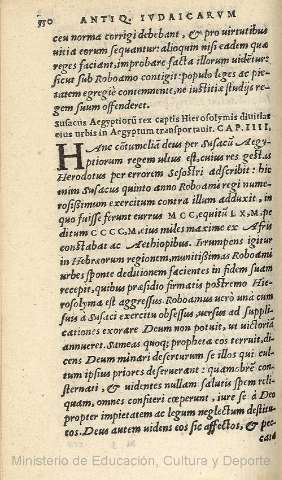 550 ANTIQ. IVDAICARVM
ceu norma corrigi debebant, & pro virtutibus
uitia eorum sequantur: alioquin nisi eadem quæ
reges faciant, improbare facta illorum uidētur:
sicut sub Roboamo contigit: populo leges ac pie-
tatem egregiè contemnente, ne iustitiæ studijs re-
gem suum offenderet.
Susacus Aegyptiorū rex captis Hierosolymis diuitias
eius urbis in Aegyptum transportauit. CAP. IIII.
HAnc cōtumeliā deus per Susacū Aegy-
ptiorum regem ultus est, cuius res gestas
Herodotus per errorem Sesostri adscribit: hic
enim Susacus quinto anno Roboami regi nume-
rosissimum exercitum contra illum adduxit, in
quo fuisse ferunt currus MCC, equitū LX, M. pe
ditum CCCC, M. eius miles maxime ex Afris
constabat ac Aethiopibus. Irrumpens igitur
in Hebræorum regionem, munitissimas Roboami
urbes sponte deditionem facientes in fidem suam
recepit, quibus præsidio firmatis postremo Hie-
rosolyma est aggressus. Roboamus uerò unà cum
suis à Susaci exercitu obsessus, uersus ad suppli-
cationes exorare Deum non potuit, ut uictoriā
annueret. Sameas quoq; propheta eos terruit, di-
cens Deum minari deserturum se illos qui cul-
tum ipsius priores deseruerant: quamobrē con-
sternati, & uidentes nullam salutis spem reli-
quam, omnes confiteri cœperunt, iure se à Deo
propter impietatem ac legum neglectum destitu-
tos. Deus autem uidens eos sic affectos, & pec-
cata
Ministerio de Educación, Cultura y Deporte